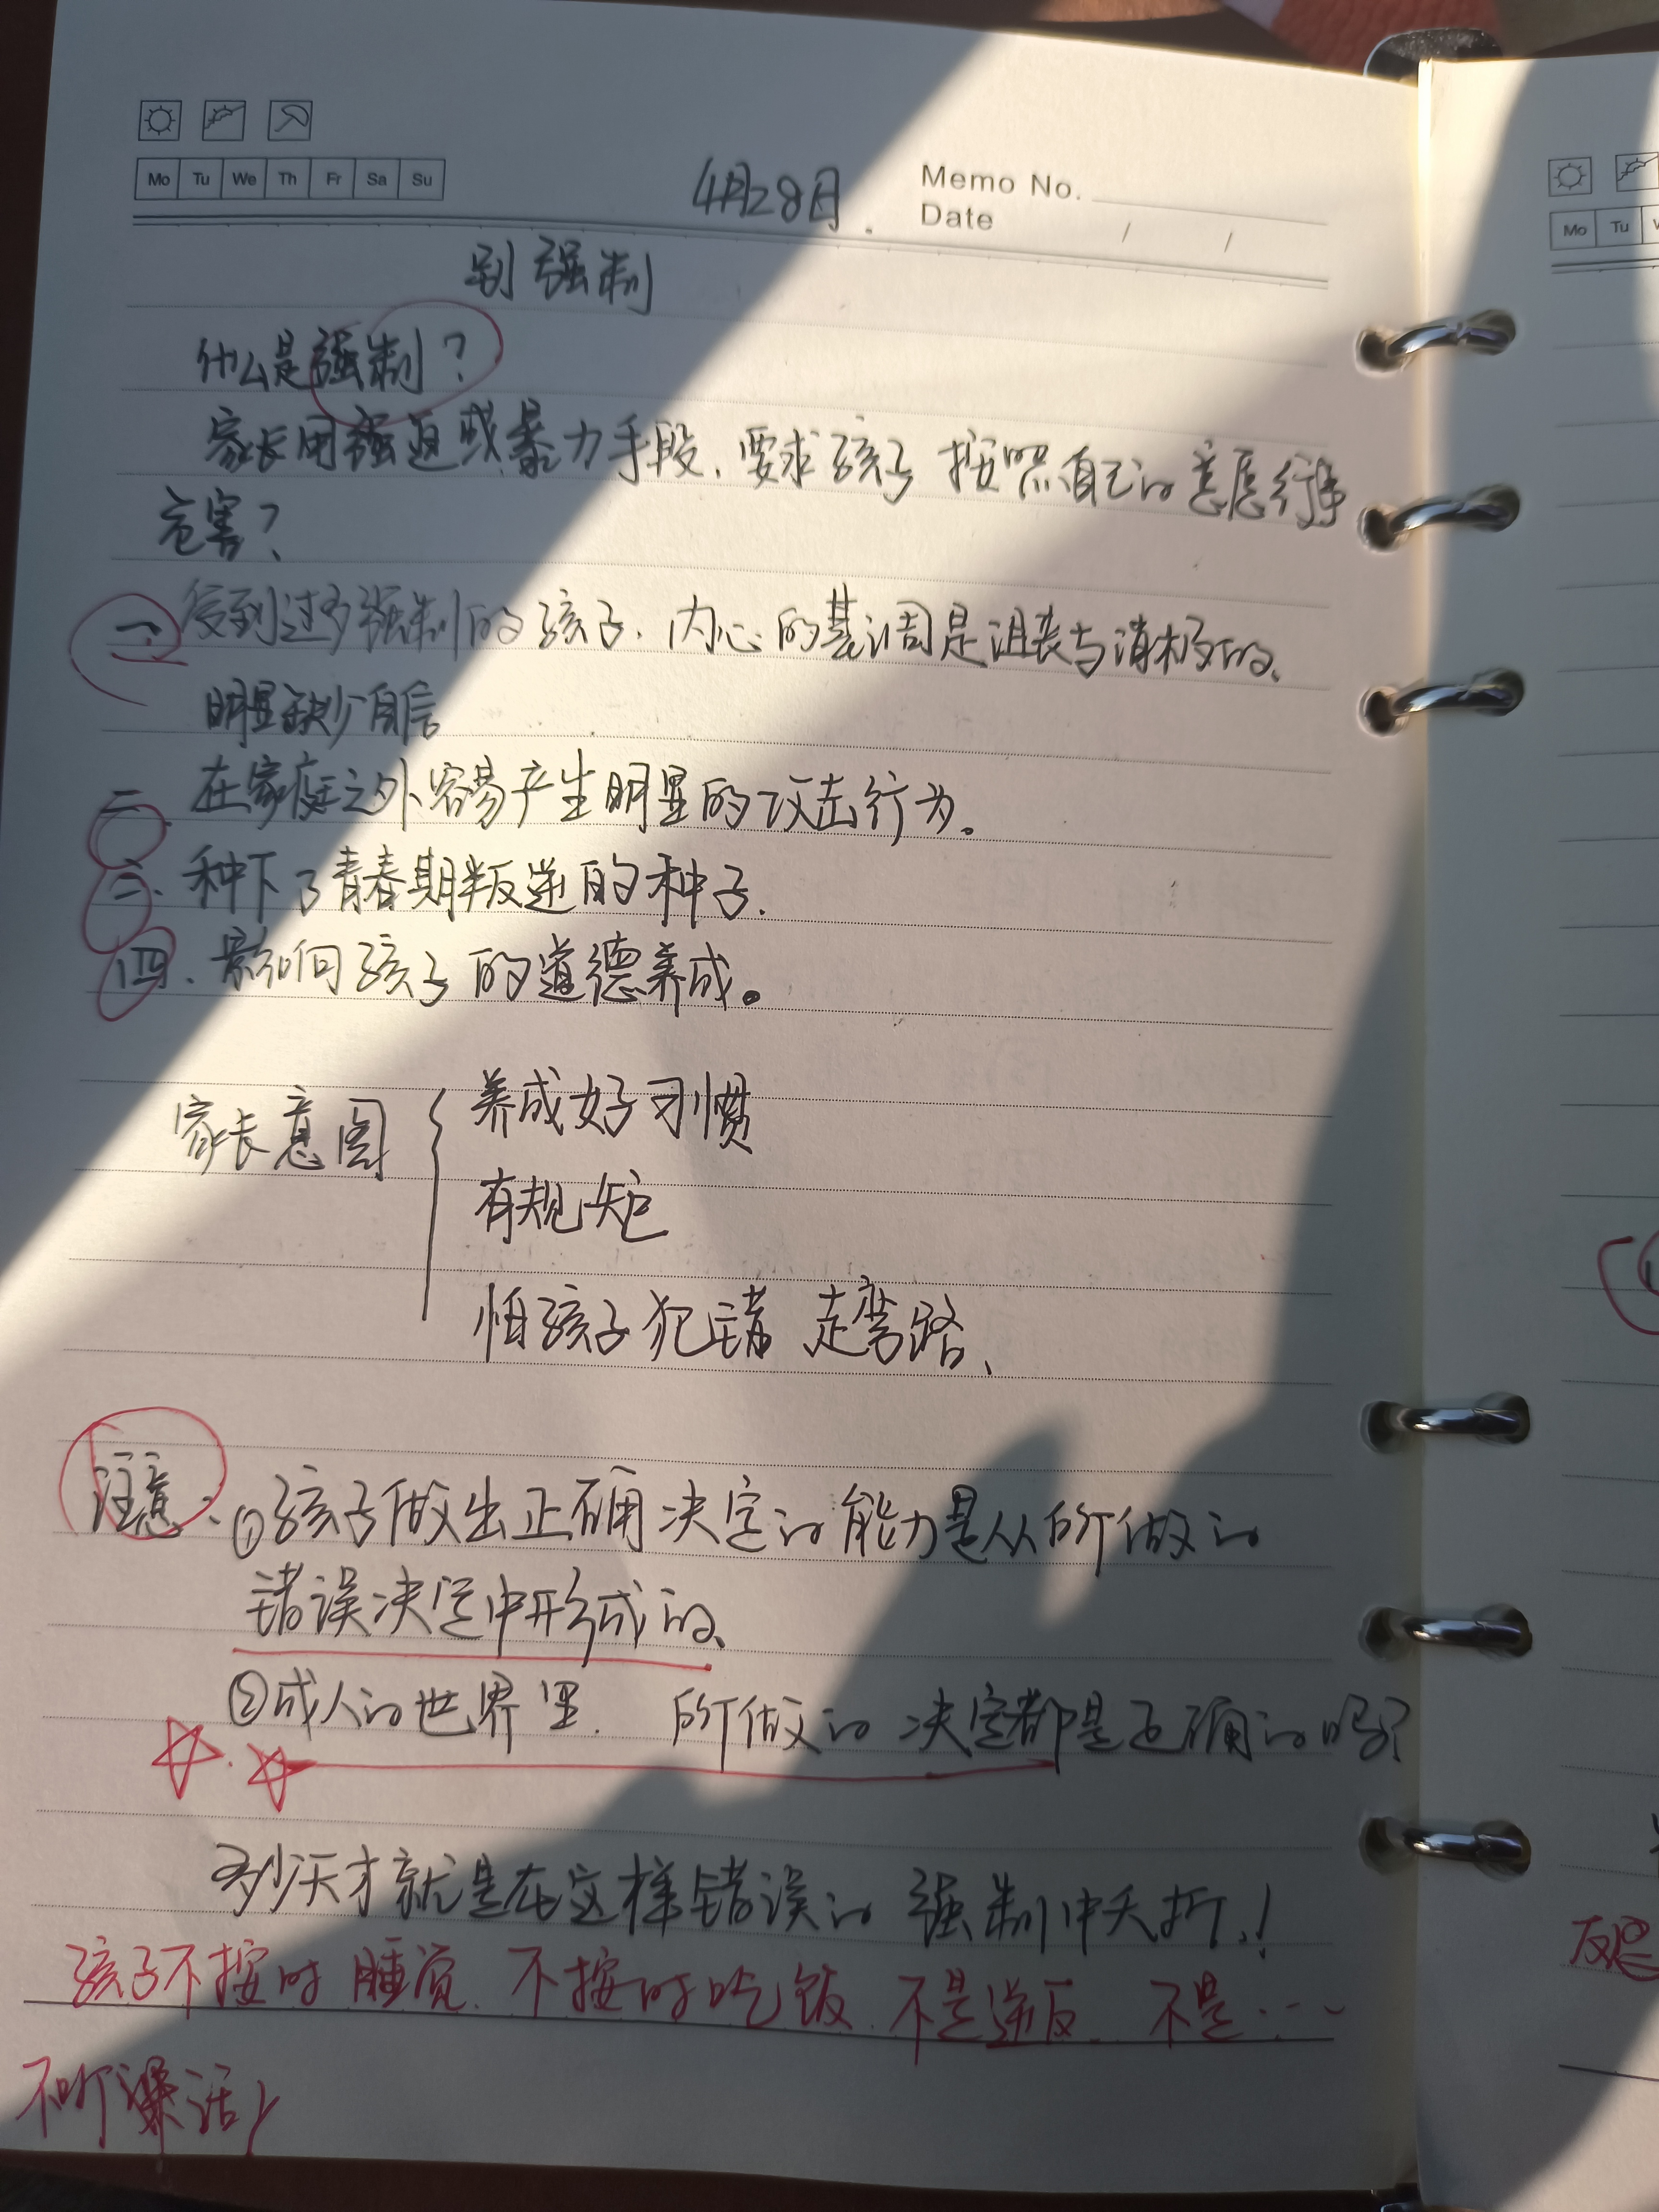 Mo Tu We Th Fr Sa Su
4月28日.
Memo No.
Date / /
别强制
什么是强制?
家长用强迫或暴力手段,要求孩子按照自己的意愿行事
危害?
一、受到过多强制的孩子、内心的基调是沮丧与消极的、
明显缺少自信
二 在家庭之外容易产生明显的攻击行为。
三、种下了青春期叛逆的种子.
四、影响孩子的道德养成。
家长意图 { 养成好习惯
有规矩
怕孩子犯错 走弯路、
注意: ①孩子做出正确决定的能力是从所做的
错误决定中形成的、
②成人的世界里. 所做的决定都是正确的吗?
多少天才就是在这样错误的强制中夭折.!
孩子不按时睡觉、不按时吃饭、不是逆反、不是……
不听 话
Mo Tu